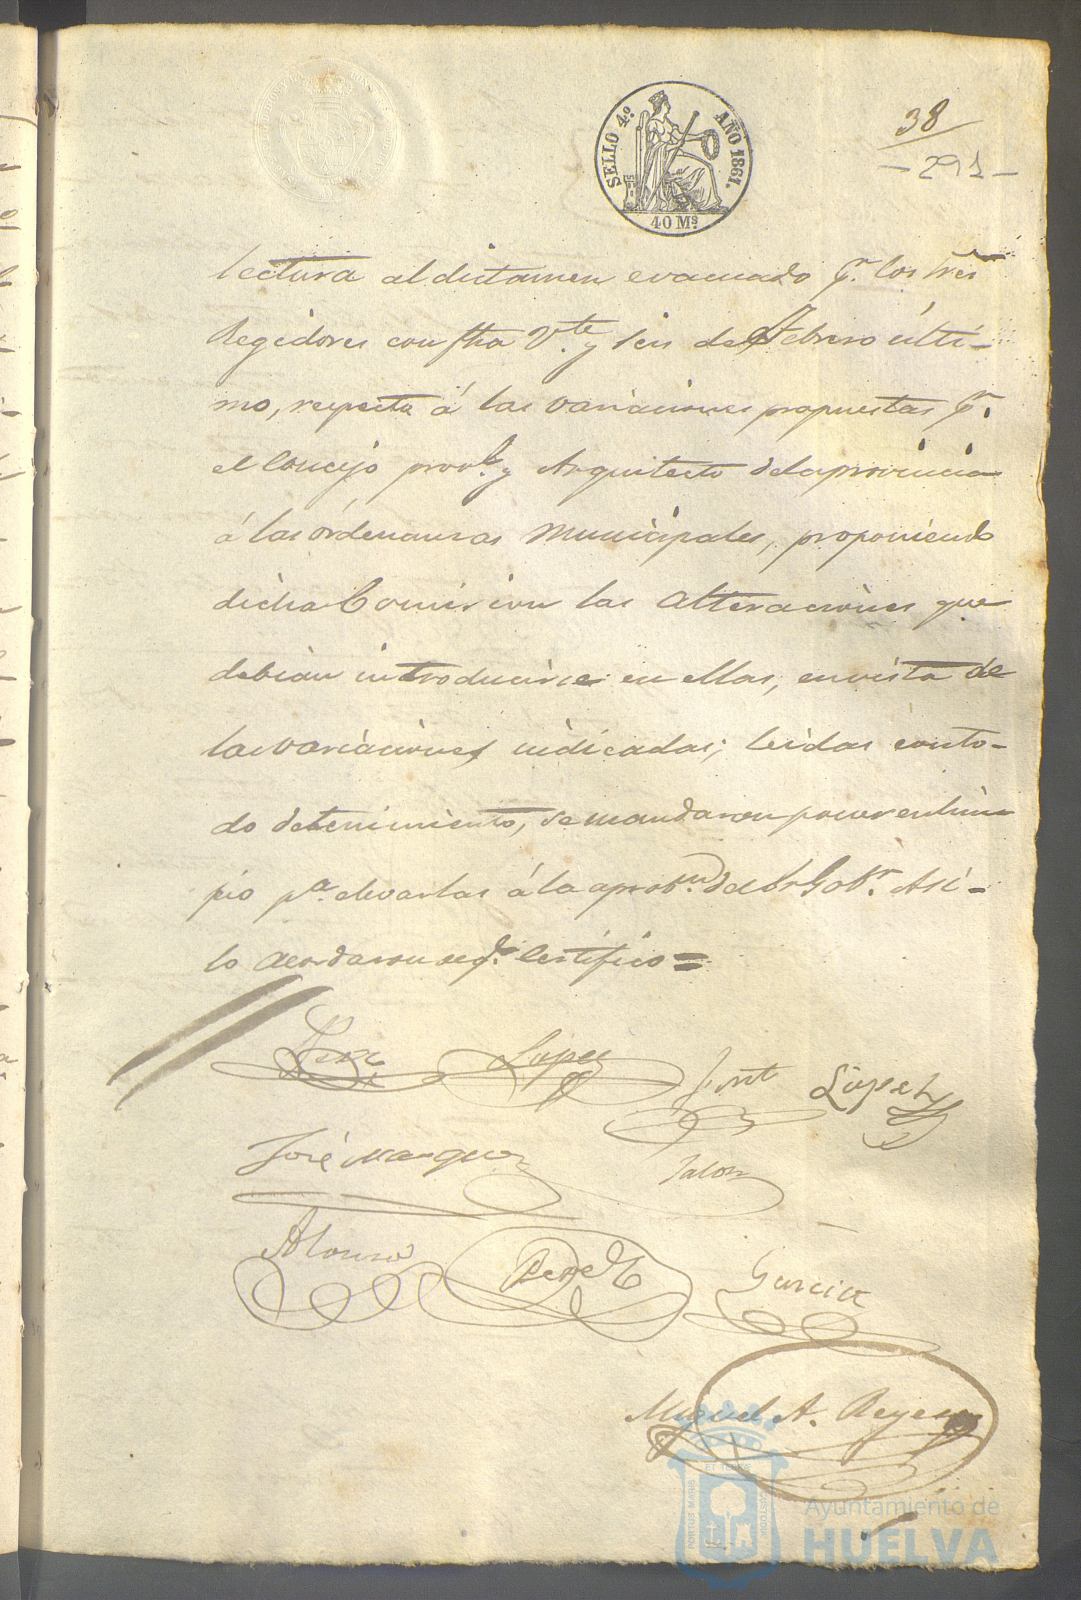 SELLO 4.º AÑO 1861.
40 Ms.
38
- 291 -
lectura al dictamen evacuado pr. los tres
Regidores con fha Vte. y seis de Febrero últi-
mo, respecto á las variaciones propuestas pr.
el Concejo provl. y Arquitecto de la provincia
á las órdenanzas Municipales, proponiendo
dicha Comision las alteraciones que
debian introducirse en ellas, en vista de
las variaciones indicadas; leidas con to-
do detenimiento, se mandaron poner en lim
pio pa. elevarlas á la aprobn. del Sr Gobr. Así-
lo acordaron de q. Certifico =
Lopez Font Lopez
José Marquez Jalon
Alonso Perez Garcia
Miguel A. Reyes
PORTUS MARIS ET TERRE CUSTODIA
Ayuntamiento de
HUELVA